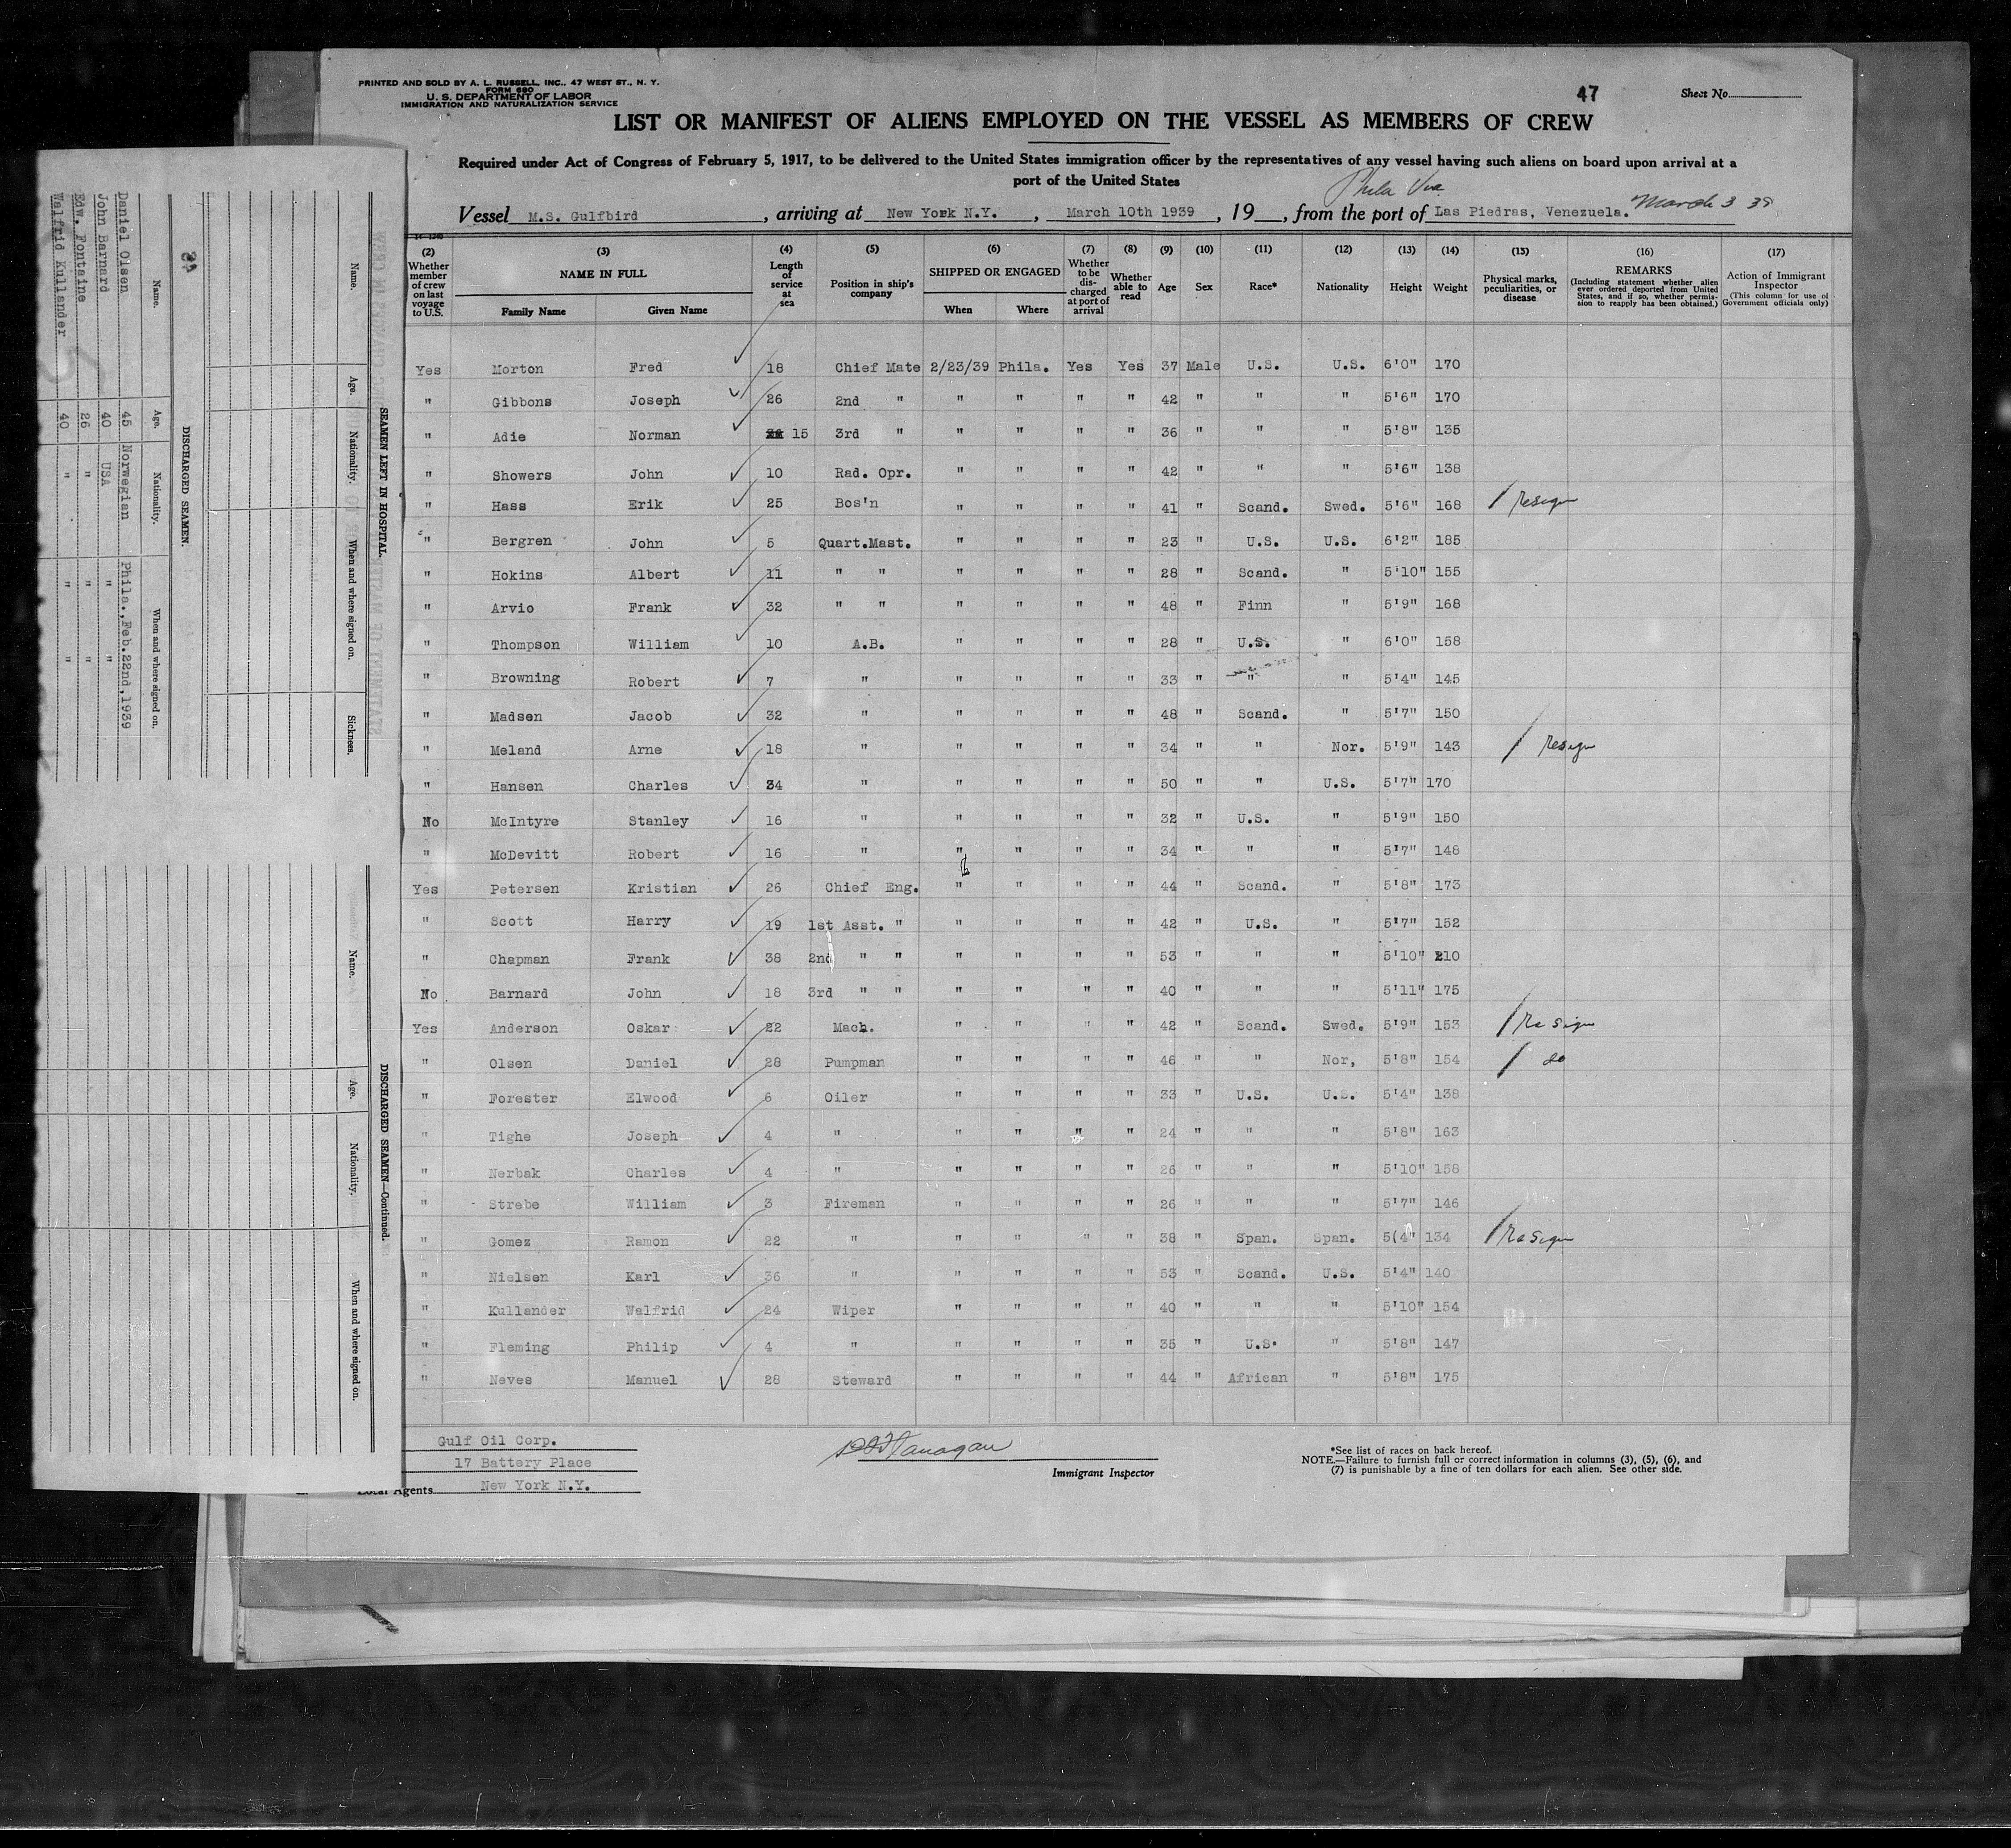 PRINTED AND SOLD BY A. L. RUSSELL, INC., 47 WEST ST., N. Y.
FORM 680
U. S. DEPARTMENT OF LABOR
IMMIGRATION AND NATURALIZATION SERVICE
47 Sheet No.
LIST OR MANIFEST OF ALIENS EMPLOYED ON THE VESSEL AS MEMBERS OF CREW
Required under Act of Congress of February 5, 1917, to be delivered to the United States immigration officer by the representatives of any vessel having such aliens on board upon arrival at a
port of the United States
Phila Via
Vessel M.S. Gulfbird, arriving at New York N.Y., March 10th 1939, 19, from the port of Las Piedras, Venezuela. March 3 39
(2) Whether member of crew on last voyage to U.S. (3) NAME IN FULL Family Name Given Name (4) Length of service at sea (5) Position in ship's company (6) SHIPPED OR ENGAGED When Where (7) Whether to be discharged at port of arrival (8) Whether able to read (9) Age (10) Sex (11) Race* (12) Nationality (13) Height (14) Weight (15) Physical marks, peculiarities, or disease (16) REMARKS (Including statement whether alien ever ordered deported from United States, and if so, whether permission to reapply has been obtained.) (17) Action of Immigrant Inspector (This column for use of Government officials only)
Yes Morton Fred 18 Chief Mate 2/23/39 Phila. Yes Yes 37 Male U.S. U.S. 6'0" 170
" Gibbons Joseph 26 2nd " " " " " 42 " " " 5'6" 170
" Adie Norman 15 3rd " " " " " 36 " " " 5'8" 135
" Showers John 10 Rad. Opr. " " " " 42 " " " 5'6" 138
" Hass Erik 25 Bos'n " " " " 41 " Scand. Swed. 5'6" 168 Resign
" Bergren John 5 Quart.Mast. " " " " 23 " U.S. U.S. 6'2" 185
" Hokins Albert 11 " " " " " " 28 " Scand. " 5'10" 155
" Arvio Frank 32 " " " " " " 48 " Finn " 5'9" 168
" Thompson William 10 A.B. " " " " 28 " U.S. " 6'0" 158
" Browning Robert 7 " " " " " 33 " " " 5'4" 145
" Madsen Jacob 32 " " " " " 48 " Scand. " 5'7" 150
" Meland Arne 18 " " " " " 34 " " Nor. 5'9" 143 Resign
" Hansen Charles 34 " " " " " 50 " " U.S. 5'7" 170
No McIntyre Stanley 16 " " " " " 32 " U.S. " 5'9" 150
" McDevitt Robert 16 " " " " " 34 " " " 5'7" 148
Yes Petersen Kristian 26 Chief Eng. " " " " 44 " Scand. " 5'8" 173
" Scott Harry 19 1st Asst. " " " " " 42 " U.S. " 5'7" 152
" Chapman Frank 38 2nd " " " " " " 53 " " " 5'10" 210
No Barnard John 18 3rd " " " " " " 40 " " " 5'11" 175
Yes Anderson Oskar 22 Mach. " " " " 42 " Scand. Swed. 5'9" 153 Resign
" Olsen Daniel 28 Pumpman " " " " 46 " " Nor, 5'8" 154 do
" Forester Elwood 6 Oiler " " " " 33 " U.S. U.S. 5'4" 138
" Tighe Joseph 4 " " " " " 24 " " " 5'8" 163
" Nerbak Charles 4 " " " " " 26 " " " 5'10" 158
" Strebe William 3 Fireman " " " " 26 " " " 5'7" 146
" Gomez Ramon 22 " " " " " 38 " Span. Span. 5(4" 134 Resign
" Nielsen Karl 36 " " " " " 53 " Scand. U.S. 5'4" 140
" Kullander Walfrid 24 Wiper " " " " 40 " " " 5'10" 154
" Fleming Philip 4 " " " " " 35 " U.S. " 5'8" 147
" Neves Manuel 28 Steward " " " " 44 " African " 5'8" 175
Gulf Oil Corp.
17 Battery Place
Local Agents New York N.Y.
Flanagan
Immigrant Inspector
*See list of races on back hereof.
NOTE.—Failure to furnish full or correct information in columns (3), (5), (6), and
(7) is punishable by a fine of ten dollars for each alien. See other side.
SEAMEN LEFT IN HOSPITAL.
Name. Age. Nationality. When and where signed on. Sickness.
DISCHARGED SEAMEN.
Name. Age. Nationality. When and where signed on.
Daniel Olsen 45 Norwegian Phila., Feb.22nd,1939
John Barnard 40 USA " "
Edw. Fontaine 26 " " "
Walfrid Kullander 40 " " "
DISCHARGED SEAMEN—Continued.
Name. Age. Nationality. When and where signed on.